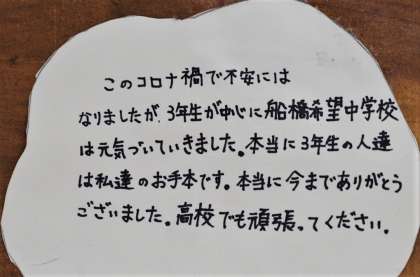 このコロナ禍で不安には
なりましたが、3年生が中心に船橋希望中学校
は元気づいていきました。本当に3年生の人達
は私達のお手本です。本当に今までありがとう
ございました。高校でも頑張ってください。